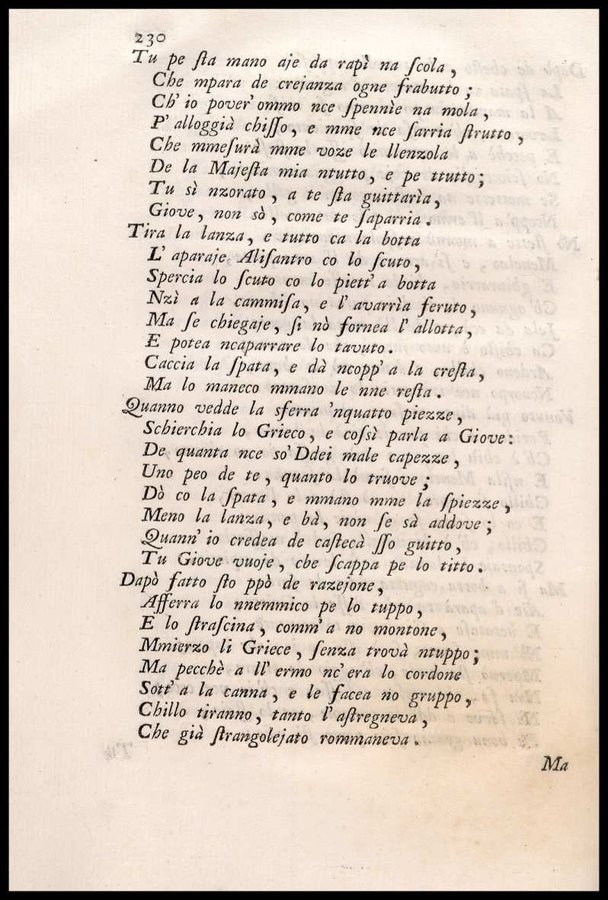 230
Tu pe ſta mano aje da rapì na ſcola,
Che mpara de crejanza ogne frabutto;
Ch' io pover' ommo nce ſpennìe na mola,
P' alloggià chiſſo, e mme nce ſarria ſtrutto,
Che mmeſurà mme voze le llenzola
De la Majeſta mia ntutto, e pe ttutto;
Tu sì nzorato, a te ſta guittarìa,
Giove, non sò, come te ſaparria.
Tira la lanza, e tutto ca la botta
L' aparaje Aliſantro co lo ſcuto,
Spercia lo ſcuto co lo piett' a botta
Nzì a la cammiſa, e l' avarrìa feruto,
Ma ſe chiegaje, ſi nò fornea l' allotta,
E potea ncaparrare lo tavuto.
Caccia la ſpata, e dà ncopp' a la creſta,
Ma lo maneco mmano le nne reſta.
Quanno vedde la sferra 'nquatto piezze,
Schierchia lo Grieco, e coſsì parla a Giove:
De quanta nce so' Ddei male capezze,
Uno peo de te, quanto lo truove;
Dò co la ſpata, e mmano mme la ſpiezze,
Meno la lanza, e bà, non ſe sà addove;
Quann' io credea de caſtecà ſſo guitto,
Tu Giove vuoje, che ſcappa pe lo titto.
Dapò fatto ſto ppò de razejone,
Afferra lo nnemmico pe lo tuppo,
E lo ſtraſcina, comm' a no montone,
Mmierzo li Griece, ſenza trovà ntuppo;
Ma pecchè a ll' ermo nc' era lo cordone
Sott' a la canna, e le facea no gruppo,
Chillo tiranno, tanto l' aſtregneva,
Che già ſtrangolejato rommaneva.
Ma